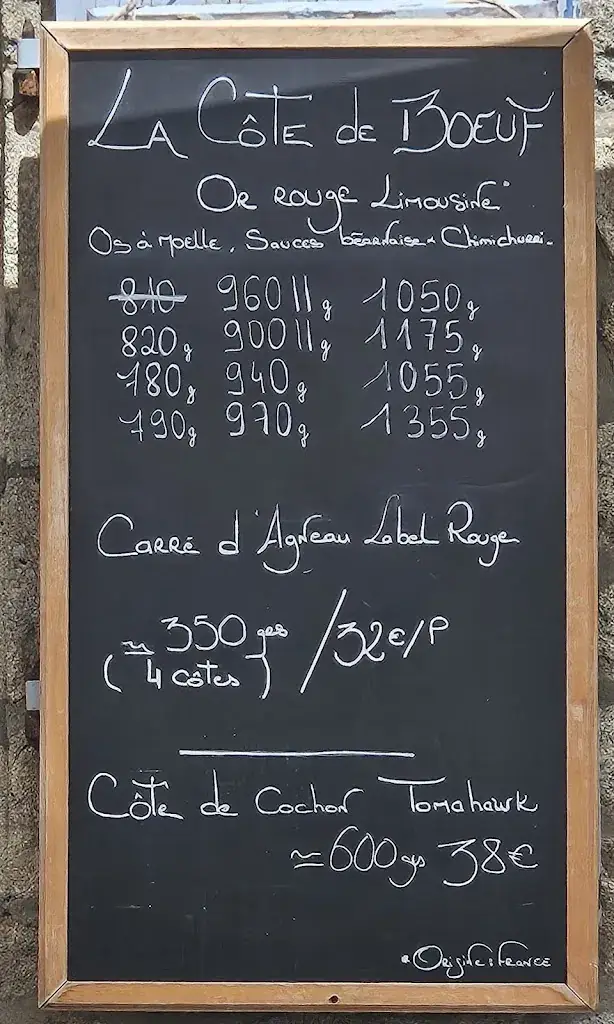 La Côte de Boeuf
Or rouge Limousine*
Os à moelle, Sauces béarnaise & Chimichurri.
810 960 || g 1050 g
820 g 900 || g 1175 g
780 g 940 g 1055 g
790 g 970 g 1355 g
Carré d'Agneau Label Rouge
≃ 350 grs / 32€/P
( 4 côtes )
Côte de Cochon Tomahawk
≃ 600 grs 38€
*Origine : France